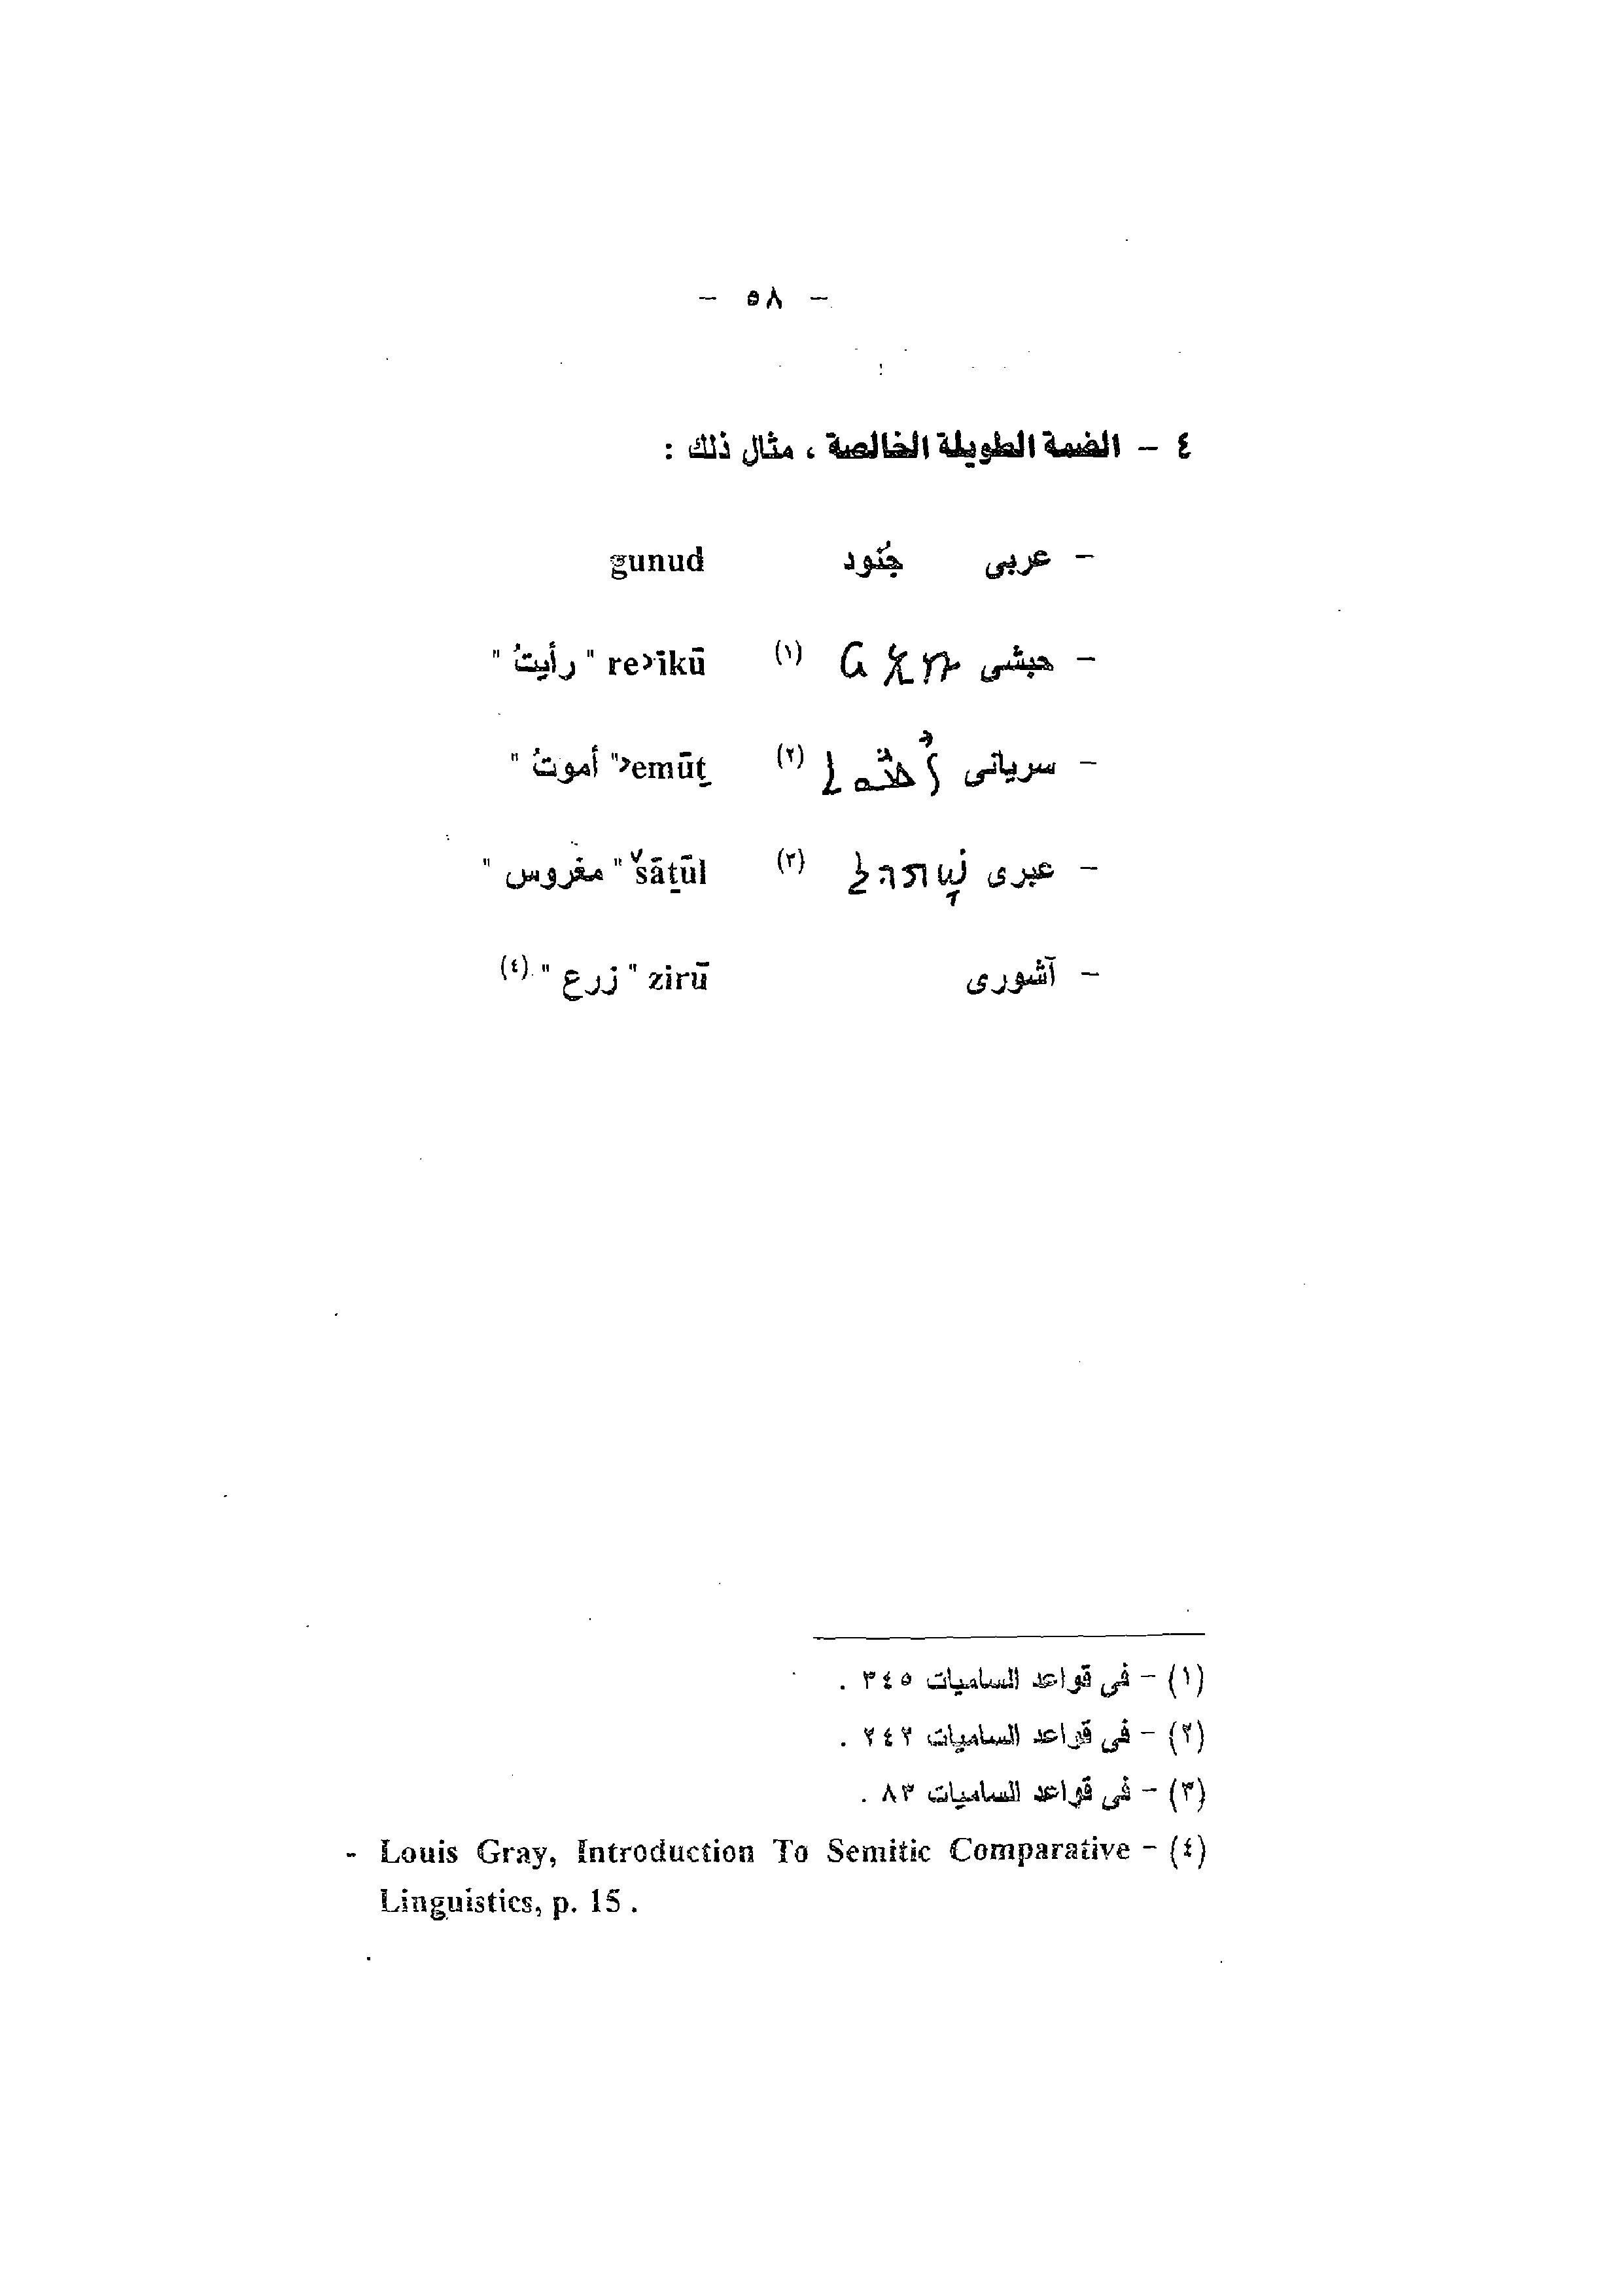 - ٥٨ -
٤ - الضمة الطويلة الخالصة ، مثال ذلك :
- عربى جُنود gunud
- حبشى (١) re›īkū " رأيتُ "
- سريانى (٢) ›emūṯ " أموتُ "
- عبرى שָׁתוּל (٣) šāṯūl " مغروس "
- آشورى zirū " زرع " (٤)
(١) - فى قواعد الساميات ٣٤٥ .
(٢) - فى قواعد الساميات ٢٤٢ .
(٣) - فى قواعد الساميات ٨٣ .
(٤) - Louis Gray, Introduction To Semitic Comparative -
Linguistics, p. 15 .